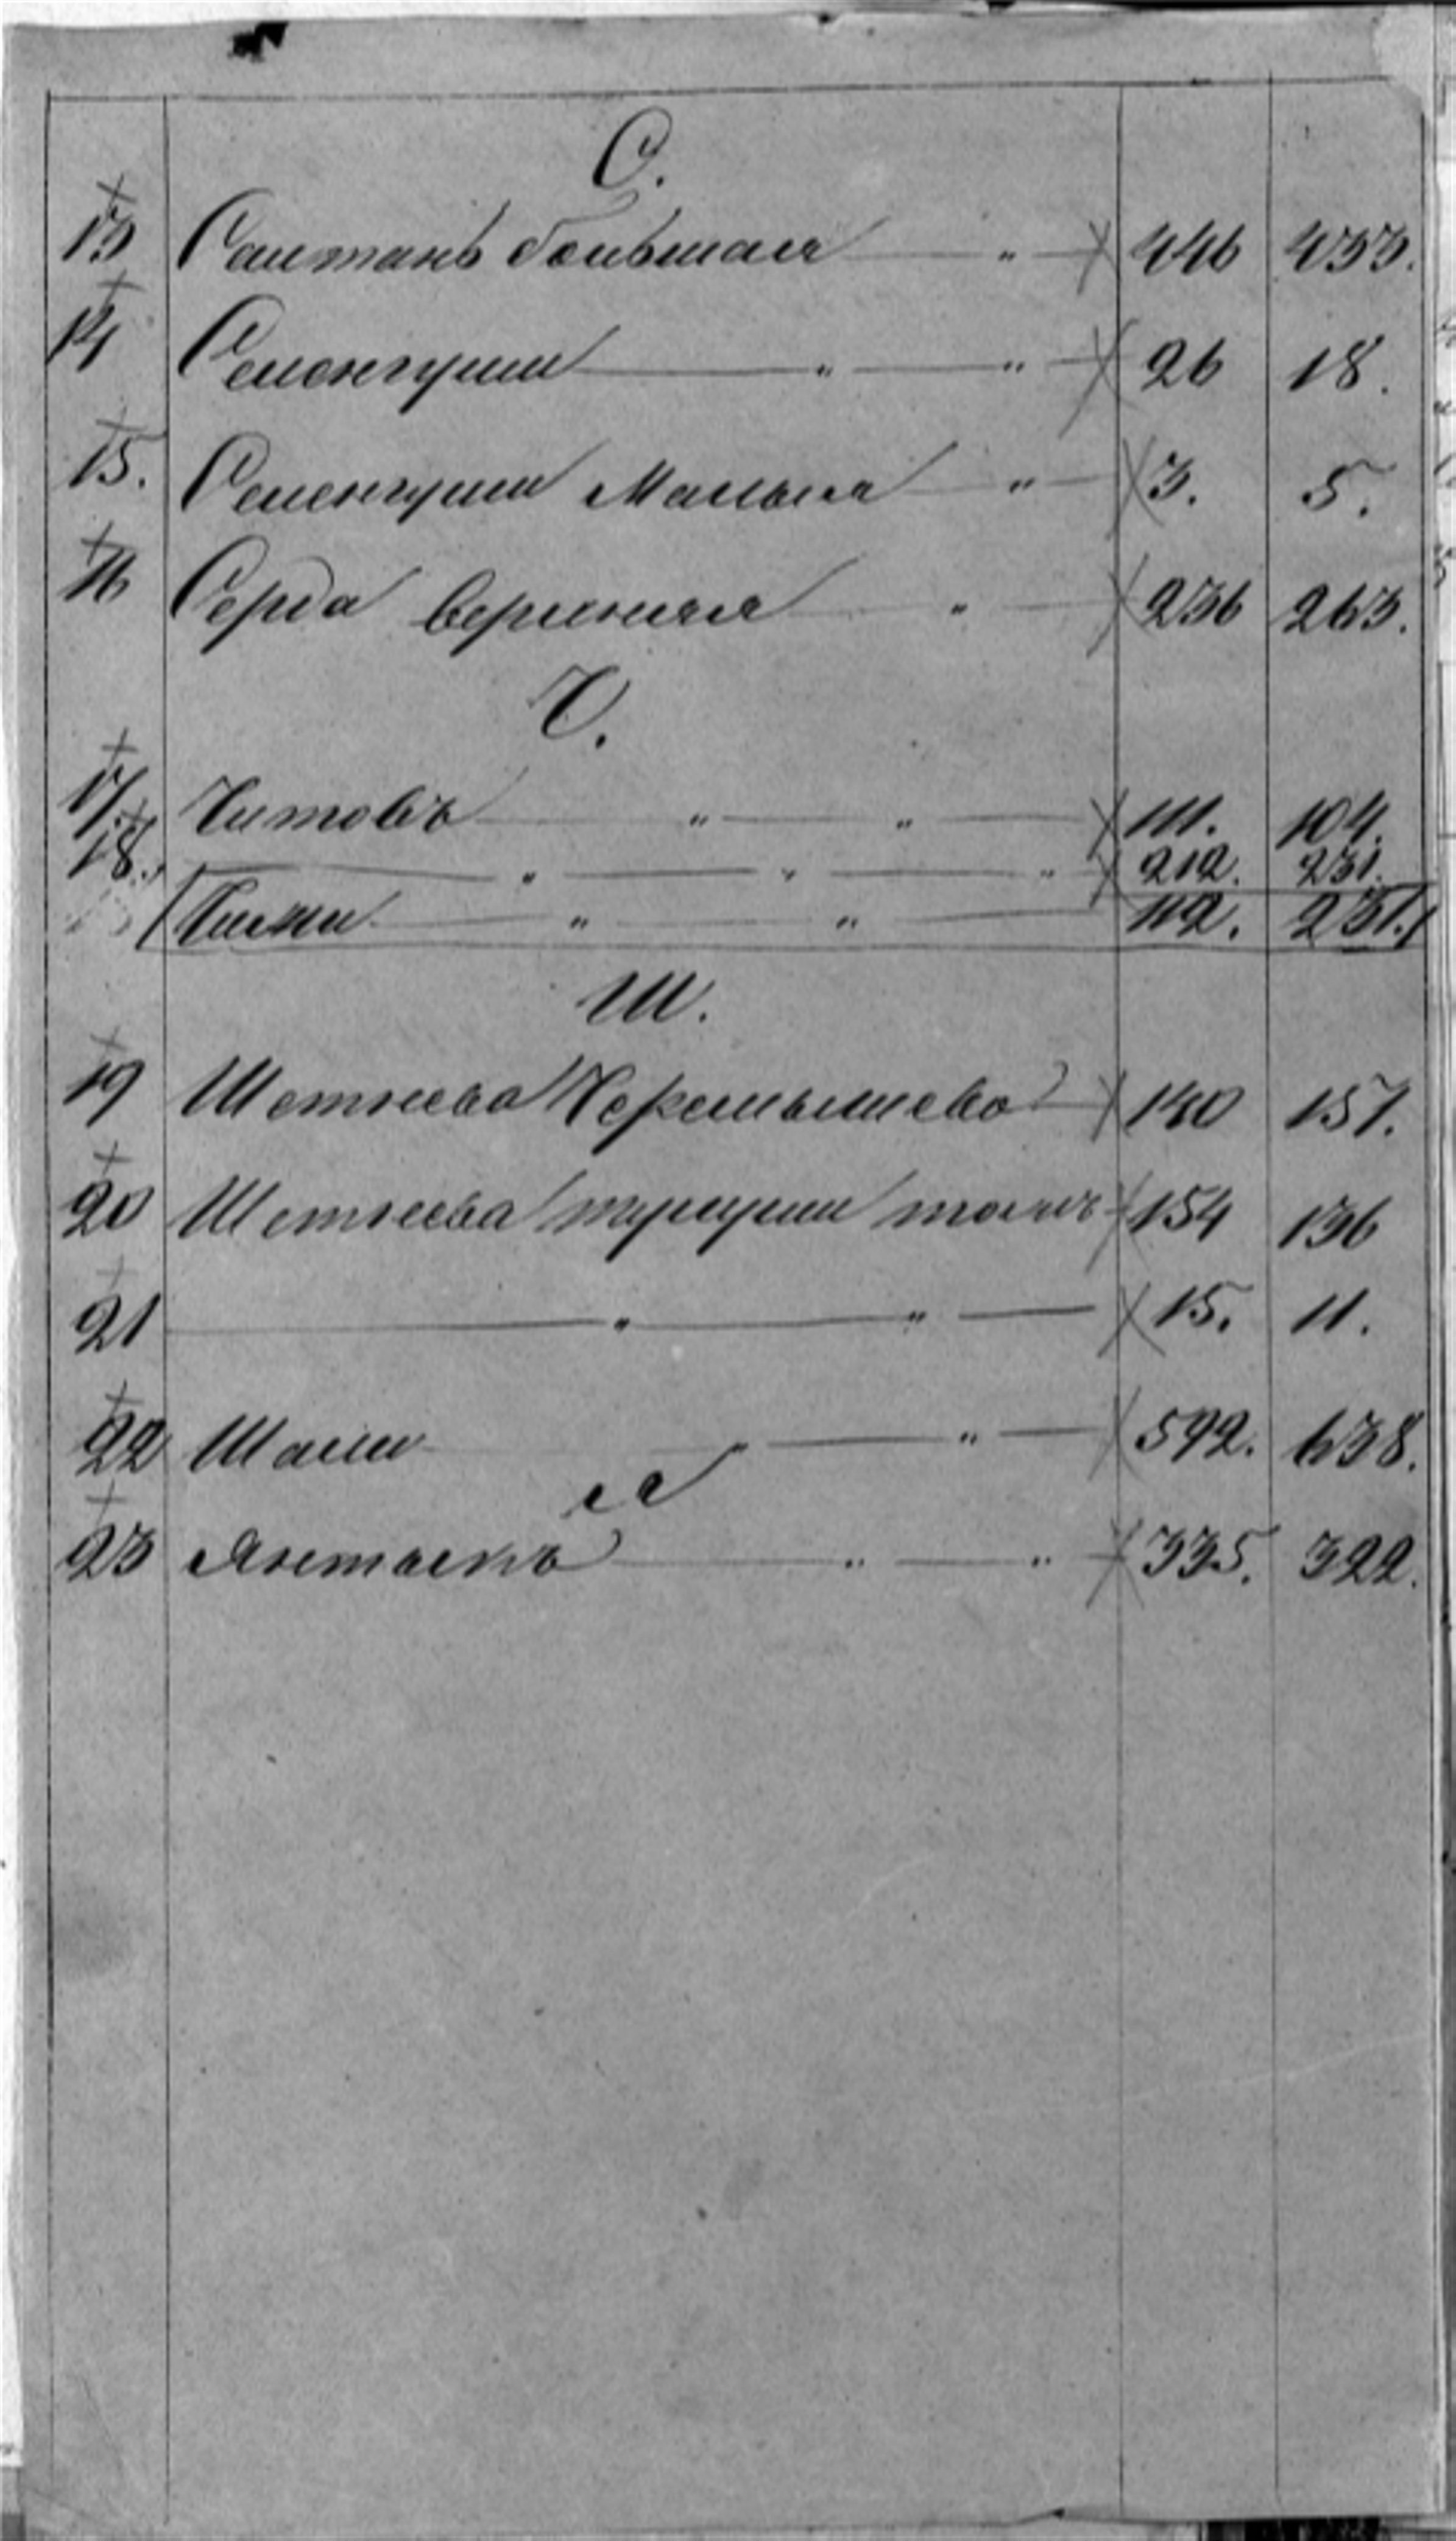 С.
13 Салтакъ большая " 446 433.
14 Семенгуши " " 26 18.
15. Семенгуши Малыя " 3. 5.
16 Серда верхняя " 236 263.
Ч.
17. Читовъ " " 111. 104.
18. " " " 212. 231.
Чички " " 112. 231.
Ш.
19 Шетнева Черемышева 140 157.
20 Шетнева 154 136
21 " " 15. 11.
22 Шали " " 592. 638.
23 " " 335. 322.